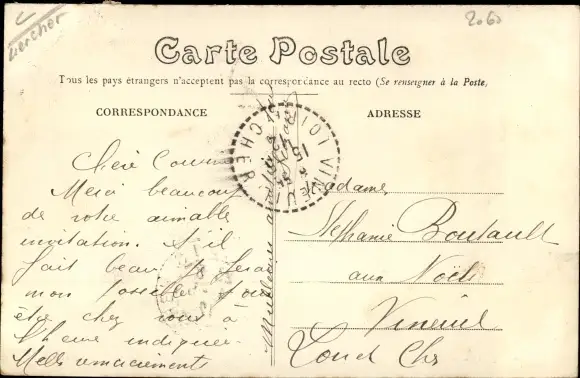 chercher
2060
Carte Postale
Tous les pays étrangers n'acceptent pas la correspondance au recto (Se renseigner à la Poste)
CORRESPONDANCE
ADRESSE
Chère Cousine
Merci beaucoup
de votre aimable
invitation. S'il
fait beau je ferai
mon possible pour
être chez vous à
l'heure indiquée.
Mille remerciements
VINEUIL
LOIR ET CHER
15
12
Madame
Stéphanie Boutault
aux Noëls
Vineuil
Loir et Cher